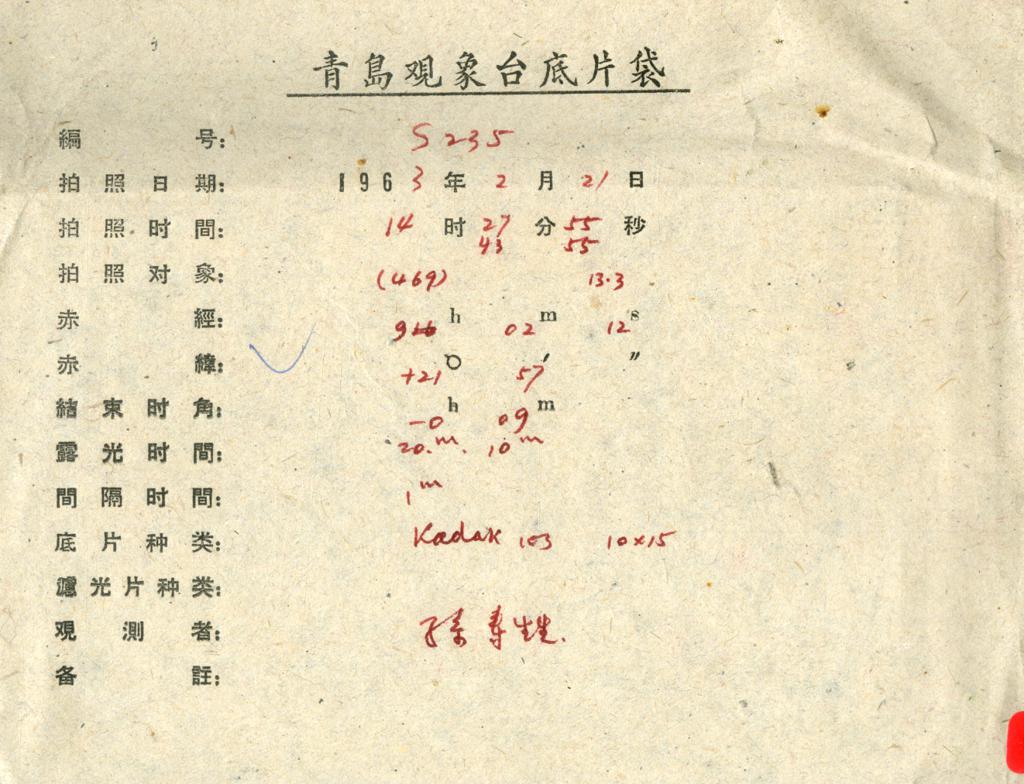 青島观象台底片袋
編号: S235
拍照日期: 1963年2月21日
拍照时間: 14时27分55秒
43 55
拍照对象: (469) 13.3
赤經: 9h 02m 12s
赤緯: +21° 57′ ″
結束时角: -0h 09m
露光时間: 20.m. 10m
間隔时間: 1m
底片种类: Kadak 103 10×15
濾光片种类:
观測者: 孫寿
备註: